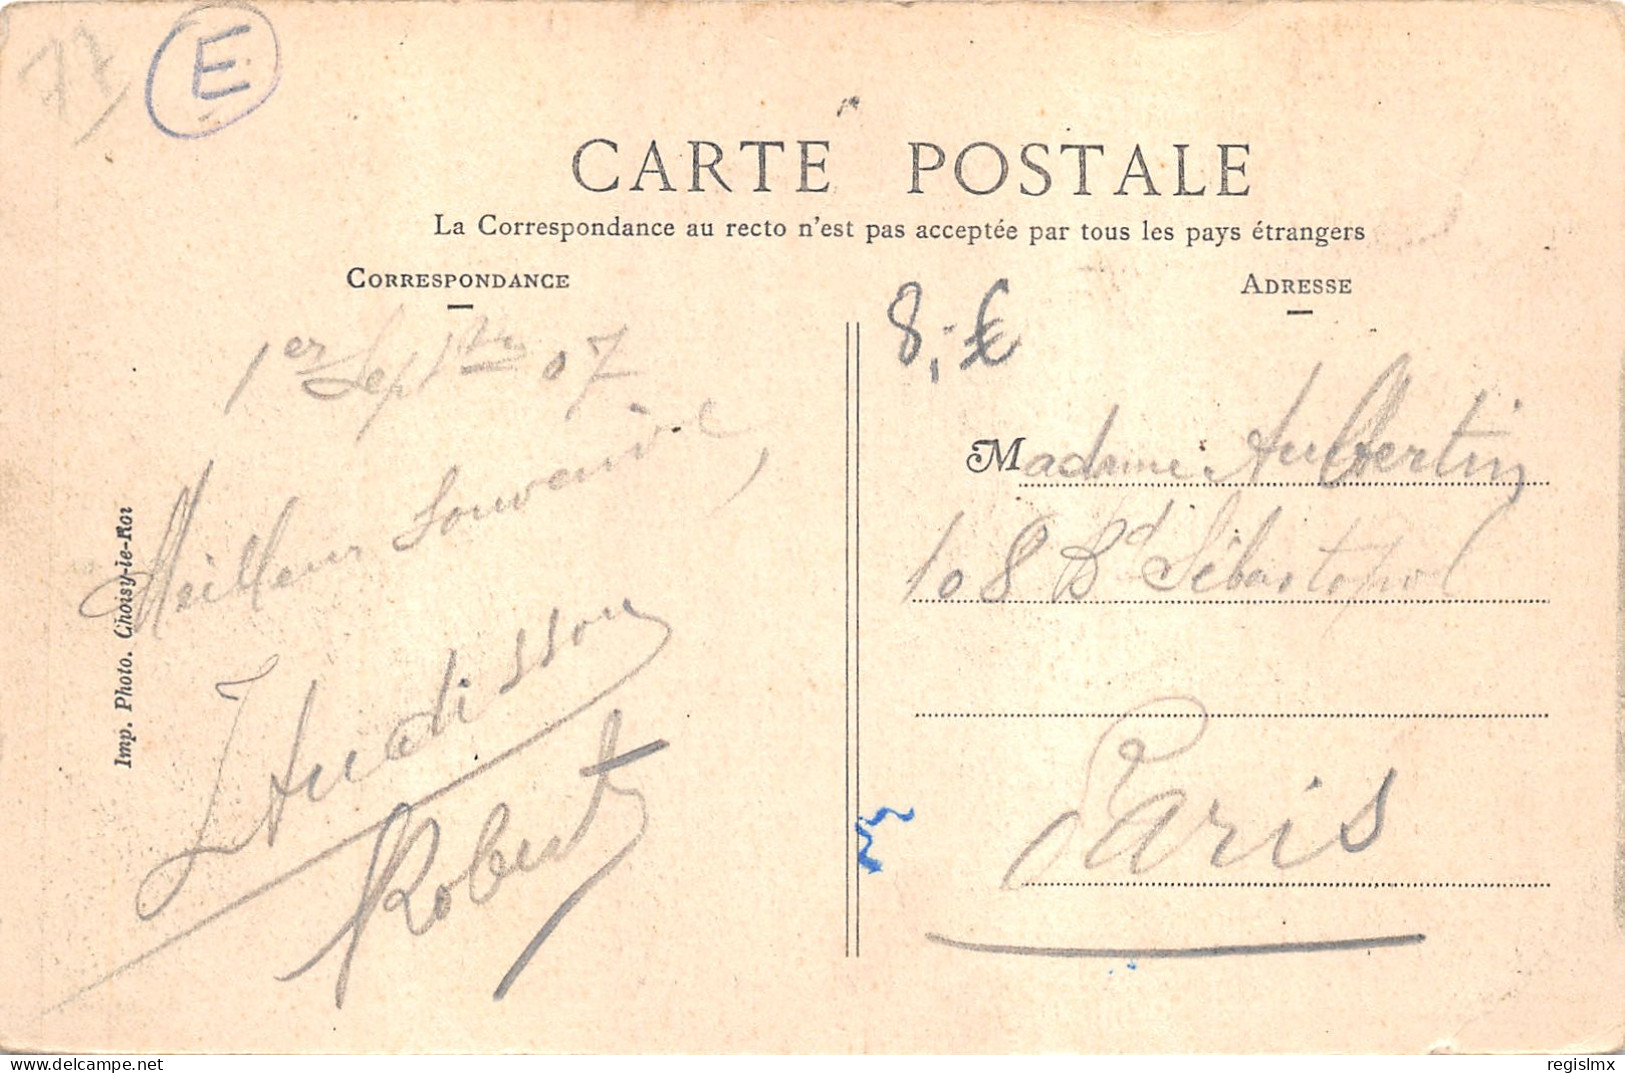 77
E
CARTE POSTALE
La Correspondance au recto n'est pas acceptée par tous les pays étrangers
CORRESPONDANCE
ADRESSE
8,-€
1er Septbre 07
Meilleur Souvenir,
J Audisson
Robert
Imp. Photo. Choisy-le-Roi
Madame Aubertin
108 Bd Sébastopol
Paris
www.delcampe.net
regislmx